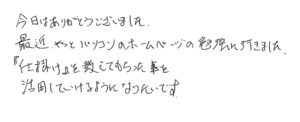 今日はありがとうございました.
最近やっとパソコンのホームページの勉強に行きました.
『仕掛け』を教えてもらった事を
活用していけるようになりたいです